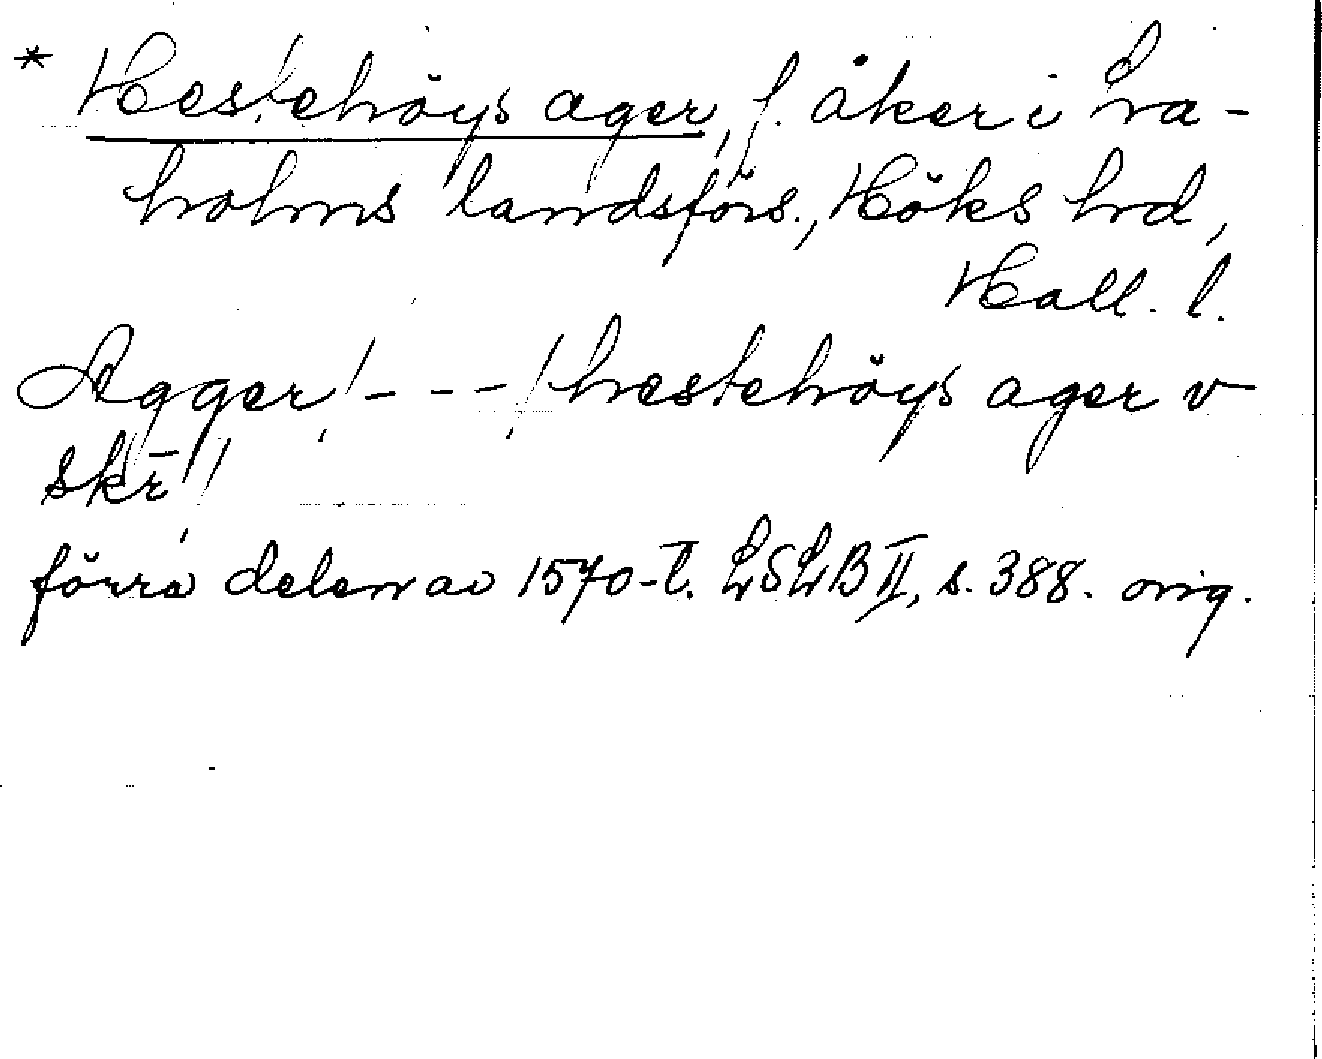 * Hestehöys ager, f. åker i La-
holms landsförs., Höks hrd,
Hall. l.
Agger / - - - / hestehöys ager v
skr /
förra delen av 1570-t. LSLB II, s. 388. orig.